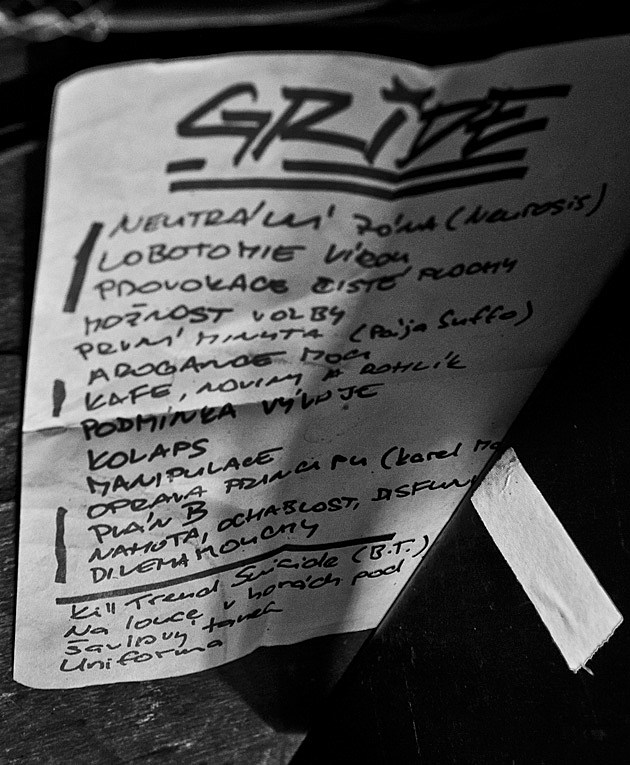 GRiDE
NEUTRÁLNÍ ZÓNA (Neurosis)
LOBOTOMIE VÍROU
PROVOKACE ČISTÉ PLOCHY
MOŽNOST VOLBY
PRVNÍ MINUTA (Pája Suffo)
AROGANCE MOCI
KAFE, NOVINY A ROHLÍK
PODMÍNKA VÝVOJE
KOLAPS
MANIPULACE
OPRAVA PRINCIPU (Karel
PLÁN B
NAHOTA, OCHABLOST, DISFUN
DILEMA MOUCHY
Kill Trend Suicide (B.T.)
Na louce v horách pod
Šavlový tanec
Uniforma